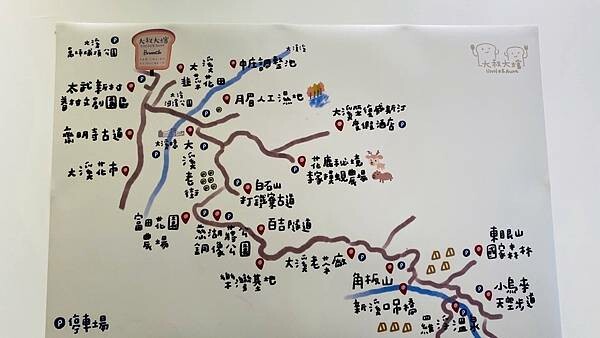 大溪
大叔大嬸
Brunch
大叔大嬸
Uncle & Aunt
大溪
韭菜花田
中庄調整池
大漢溪
月眉人工濕地
太武新村
眷村文創園區
大溪
河濱公園
齋明寺古道
大溪橋
大溪花市
大溪老街
大溪笠復威斯汀
度假酒店
花鹿秘境
李家隱蜆農場
白石山
打鐵寮古道
富田花園
農場
慈湖蔣公
銅像公園
百吉隧道
樂灣基地
大溪老茶廠
角板山
新溪口吊橋
羅浮溫泉
東眼山
國家森林
小烏來
天空步道
P 停車場